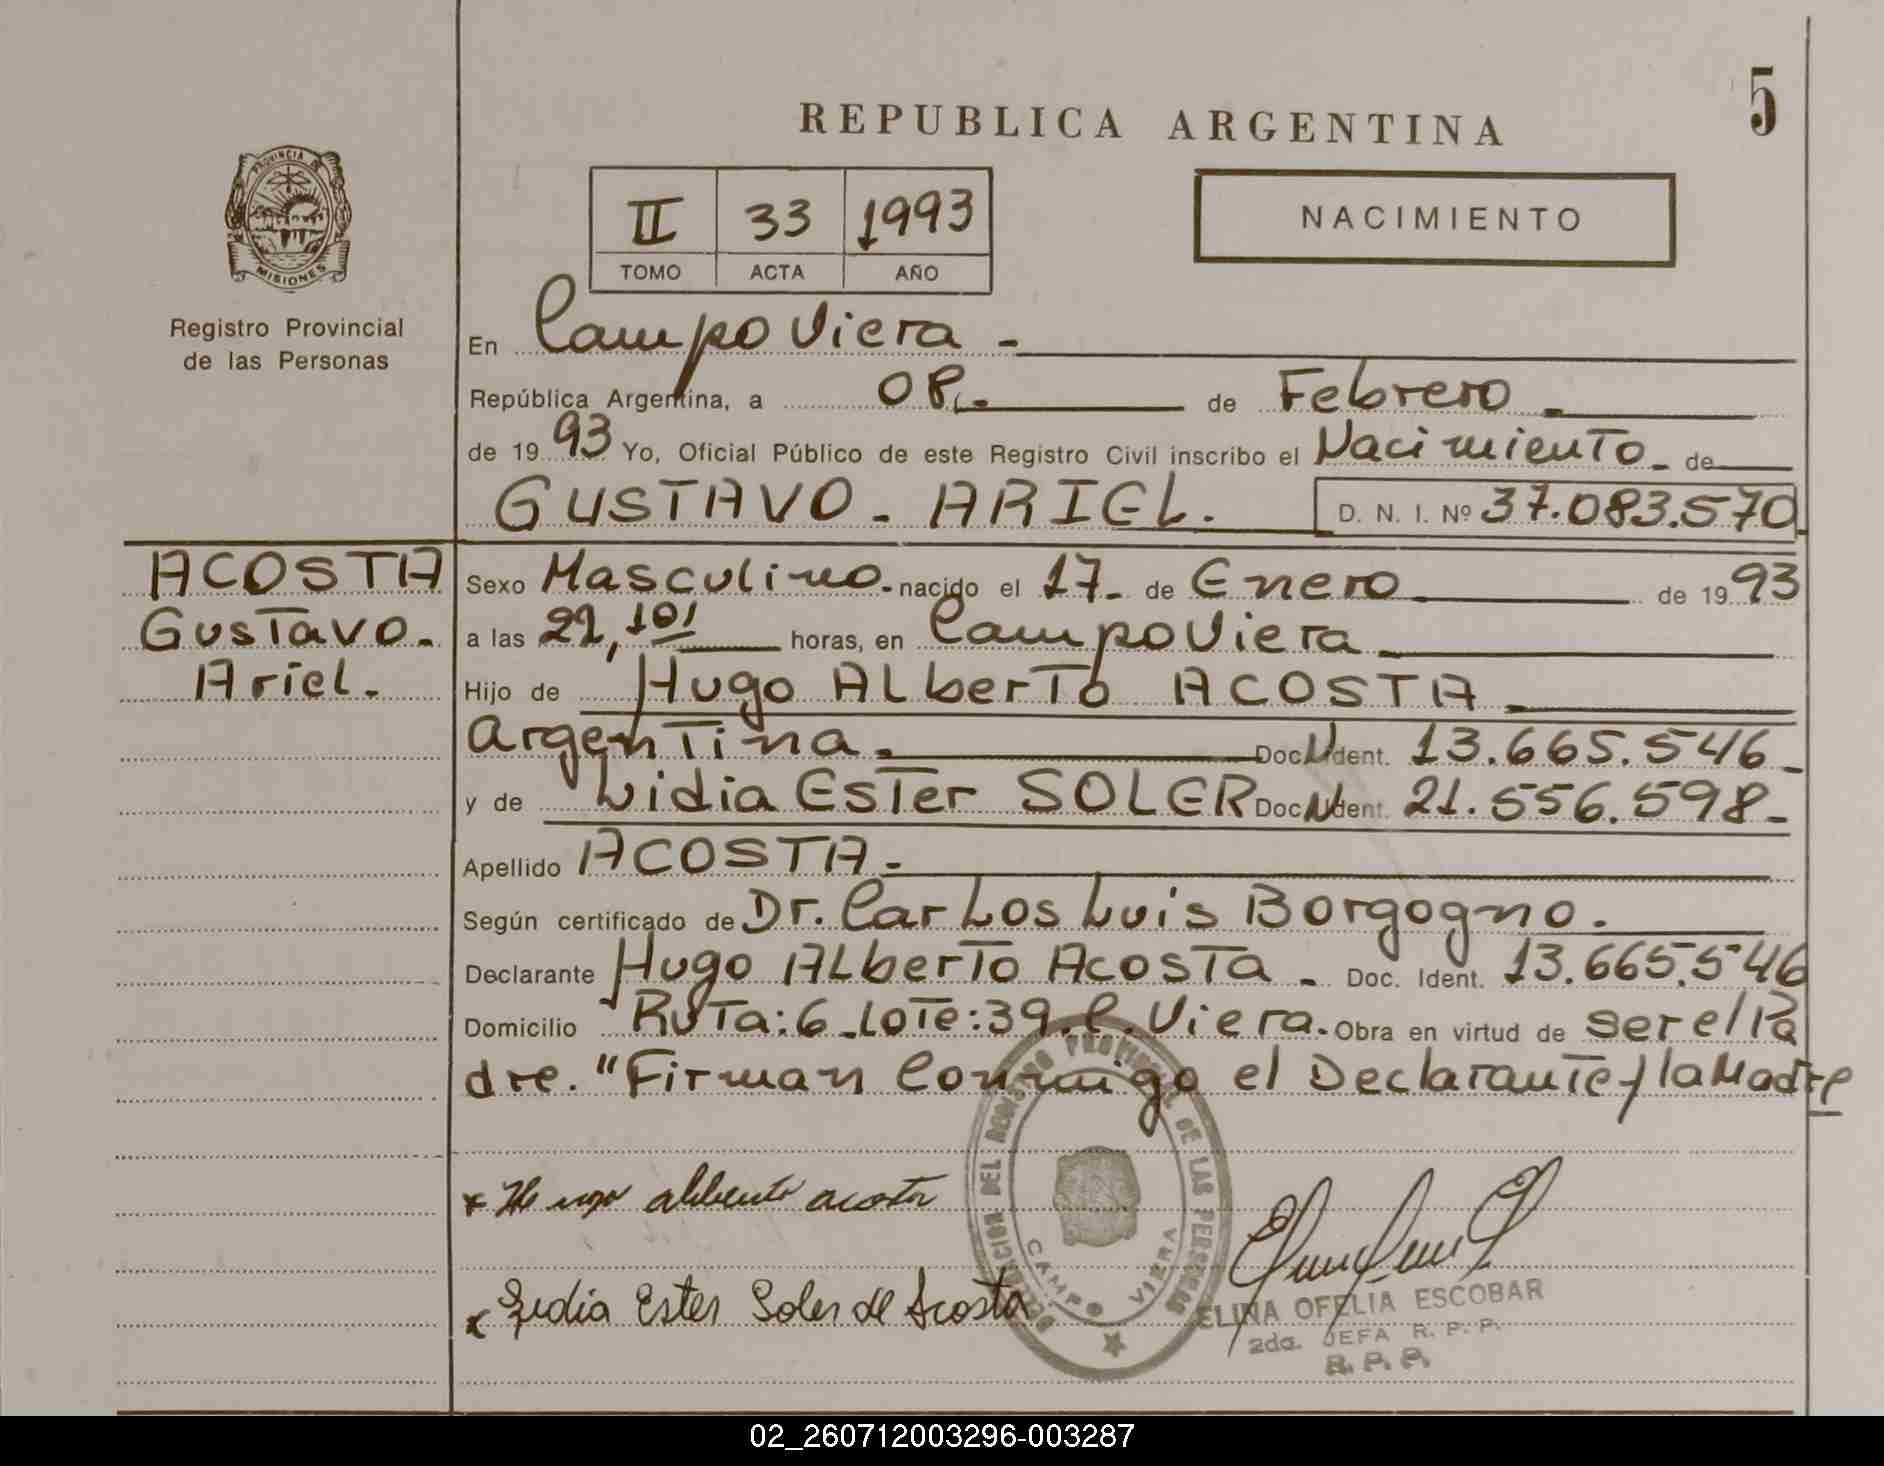 5
REPUBLICA ARGENTINA
PROVINCIA DE
MISIONES
Registro Provincial
de las Personas
II 33 1993
TOMO ACTA AÑO
NACIMIENTO
En Campo Viera -
República Argentina, a 08.- de Febrero -
de 1993 Yo, Oficial Público de este Registro Civil inscribo el Nacimiento - de
GUSTAVO - ARIEL. D. N. I. Nº 37.083.570
ACOSTA
Gustavo -
Ariel.
Sexo Masculino - nacido el 17 - de Enero de 1993
a las 22,10' horas, en Campo Viera -
Hijo de Hugo ALberTo ACOSTA -
ArgenTina. Doc. N. Ident. 13.665.546 -
y de Lidia EsTer SOLER Doc. N. Ident. 21.556.598 -
Apellido ACOSTA -
Según certificado de Dr. CarLos Luis Borgogno.
Declarante Hugo ALberTo AcosTa - Doc. Ident. 13.665.546
Domicilio RuTa: 6 - LoTe: 39. C. Viera. Obra en virtud de ser el Pa
dre. "Firman Conmigo el DeclaranTe y la Madre
Hugo alberto acosta
Lidia Ester Soler de Acosta
DELEGACION DEL REGISTRO PROVINCIAL DE LAS PERSONAS
CAMPO VIERA
ELINA OFELIA ESCOBAR
2da. JEFA R. P. P.
R. P. P.
02_260712003296-003287